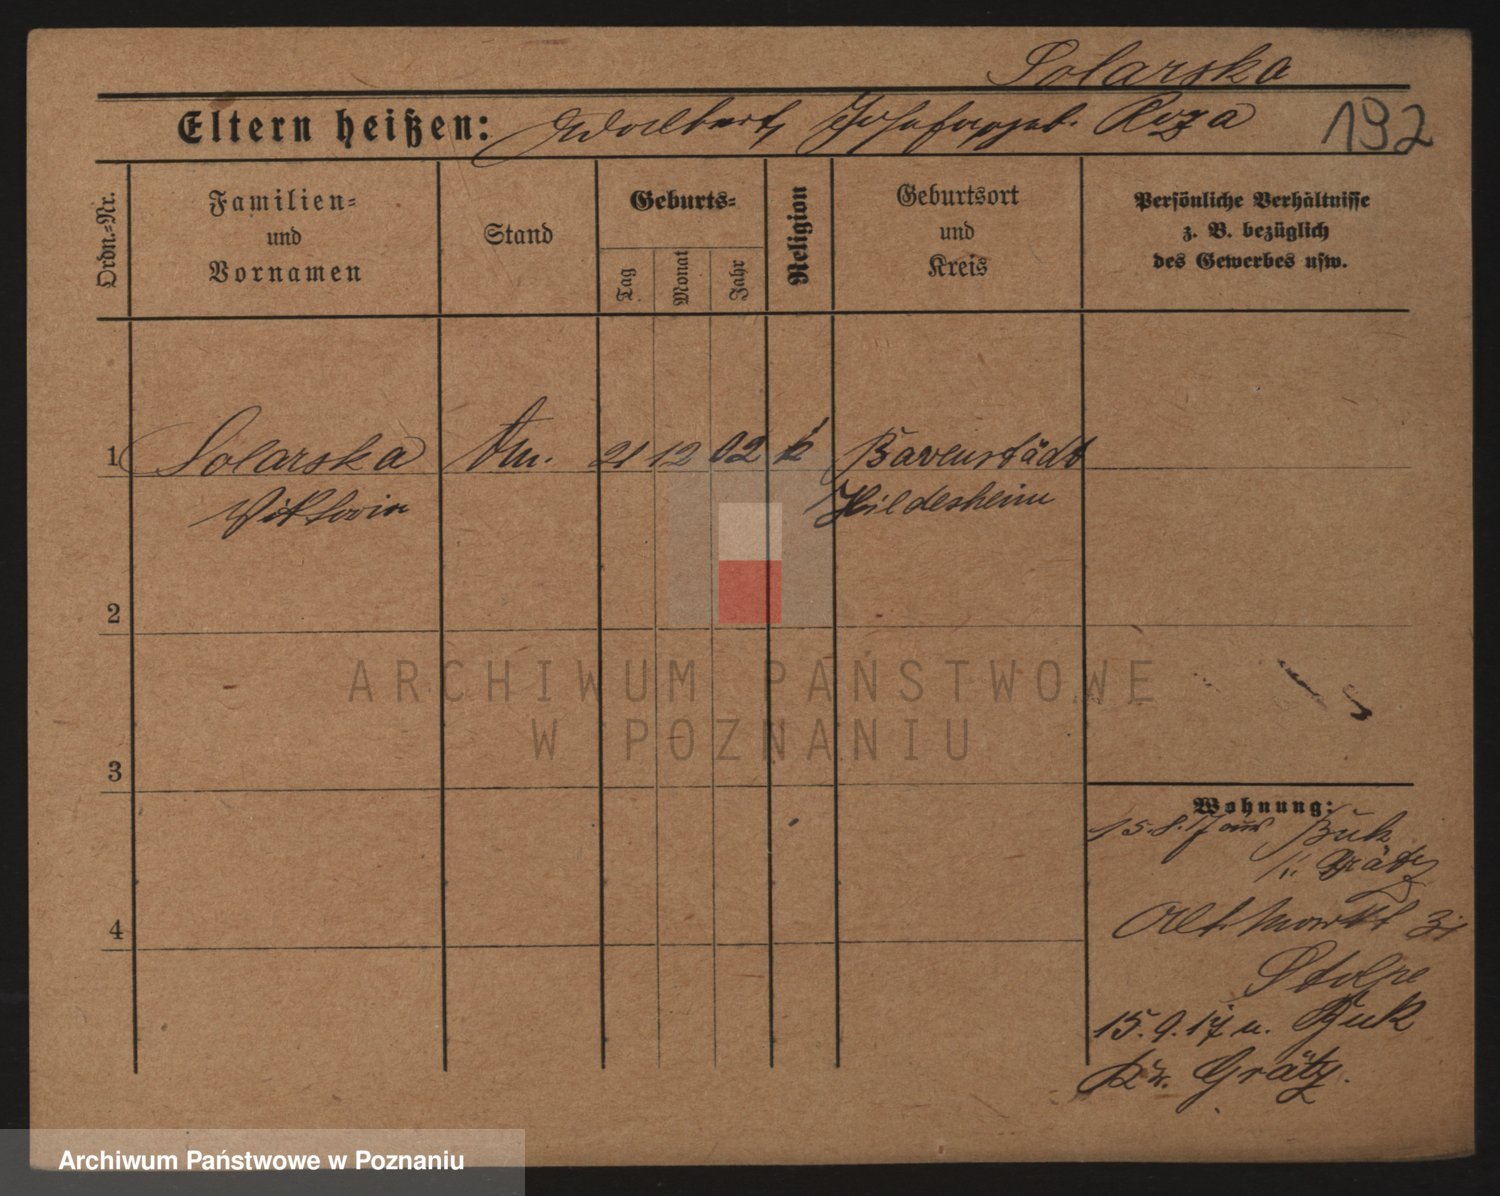 Solarska
Eltern heißen: Adalbert, Josefa geb. Roza
192
Ordn.-Nr.
Familien-
und
Vornamen
Stand
Geburts-
Tag
Monat
Jahr
Religion
Geburtsort
und
Kreis
Persönliche Verhältnisse
z. B. bezüglich
des Gewerbes usw.
1 Solarska 21 12 02 k Bavenstädt
Viktoria Hildesheim
2
3
4
Wohnung:
15.8.17 aus Buk
Grätz
Alt. Markt
Stolpe
15.9.17 n. Buk
Kr. Grätz.
ARCHIWUM PAŃSTWOWE
W POZNANIU
Archiwum Państwowe w Poznaniu